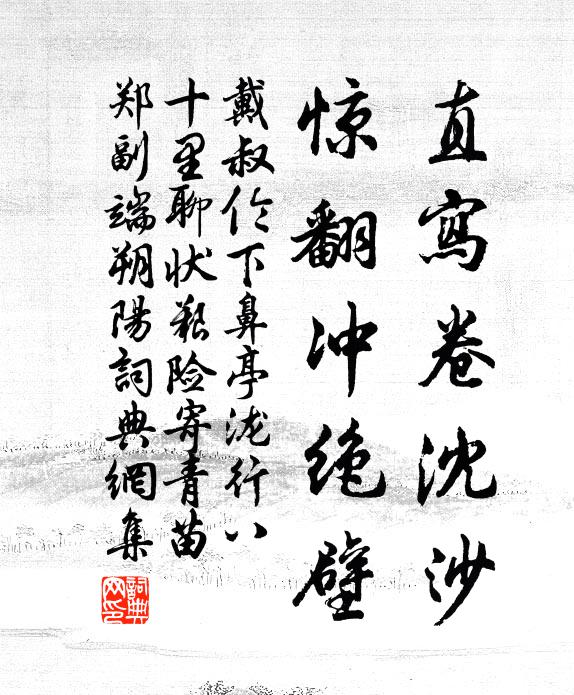 直寫卷沈沙
惊翻冲绝壁
戴叔伦下鼻亭泷行八
十里聊状艰险寄青苗
郑副端朔陽詞典網集
詞典
网印